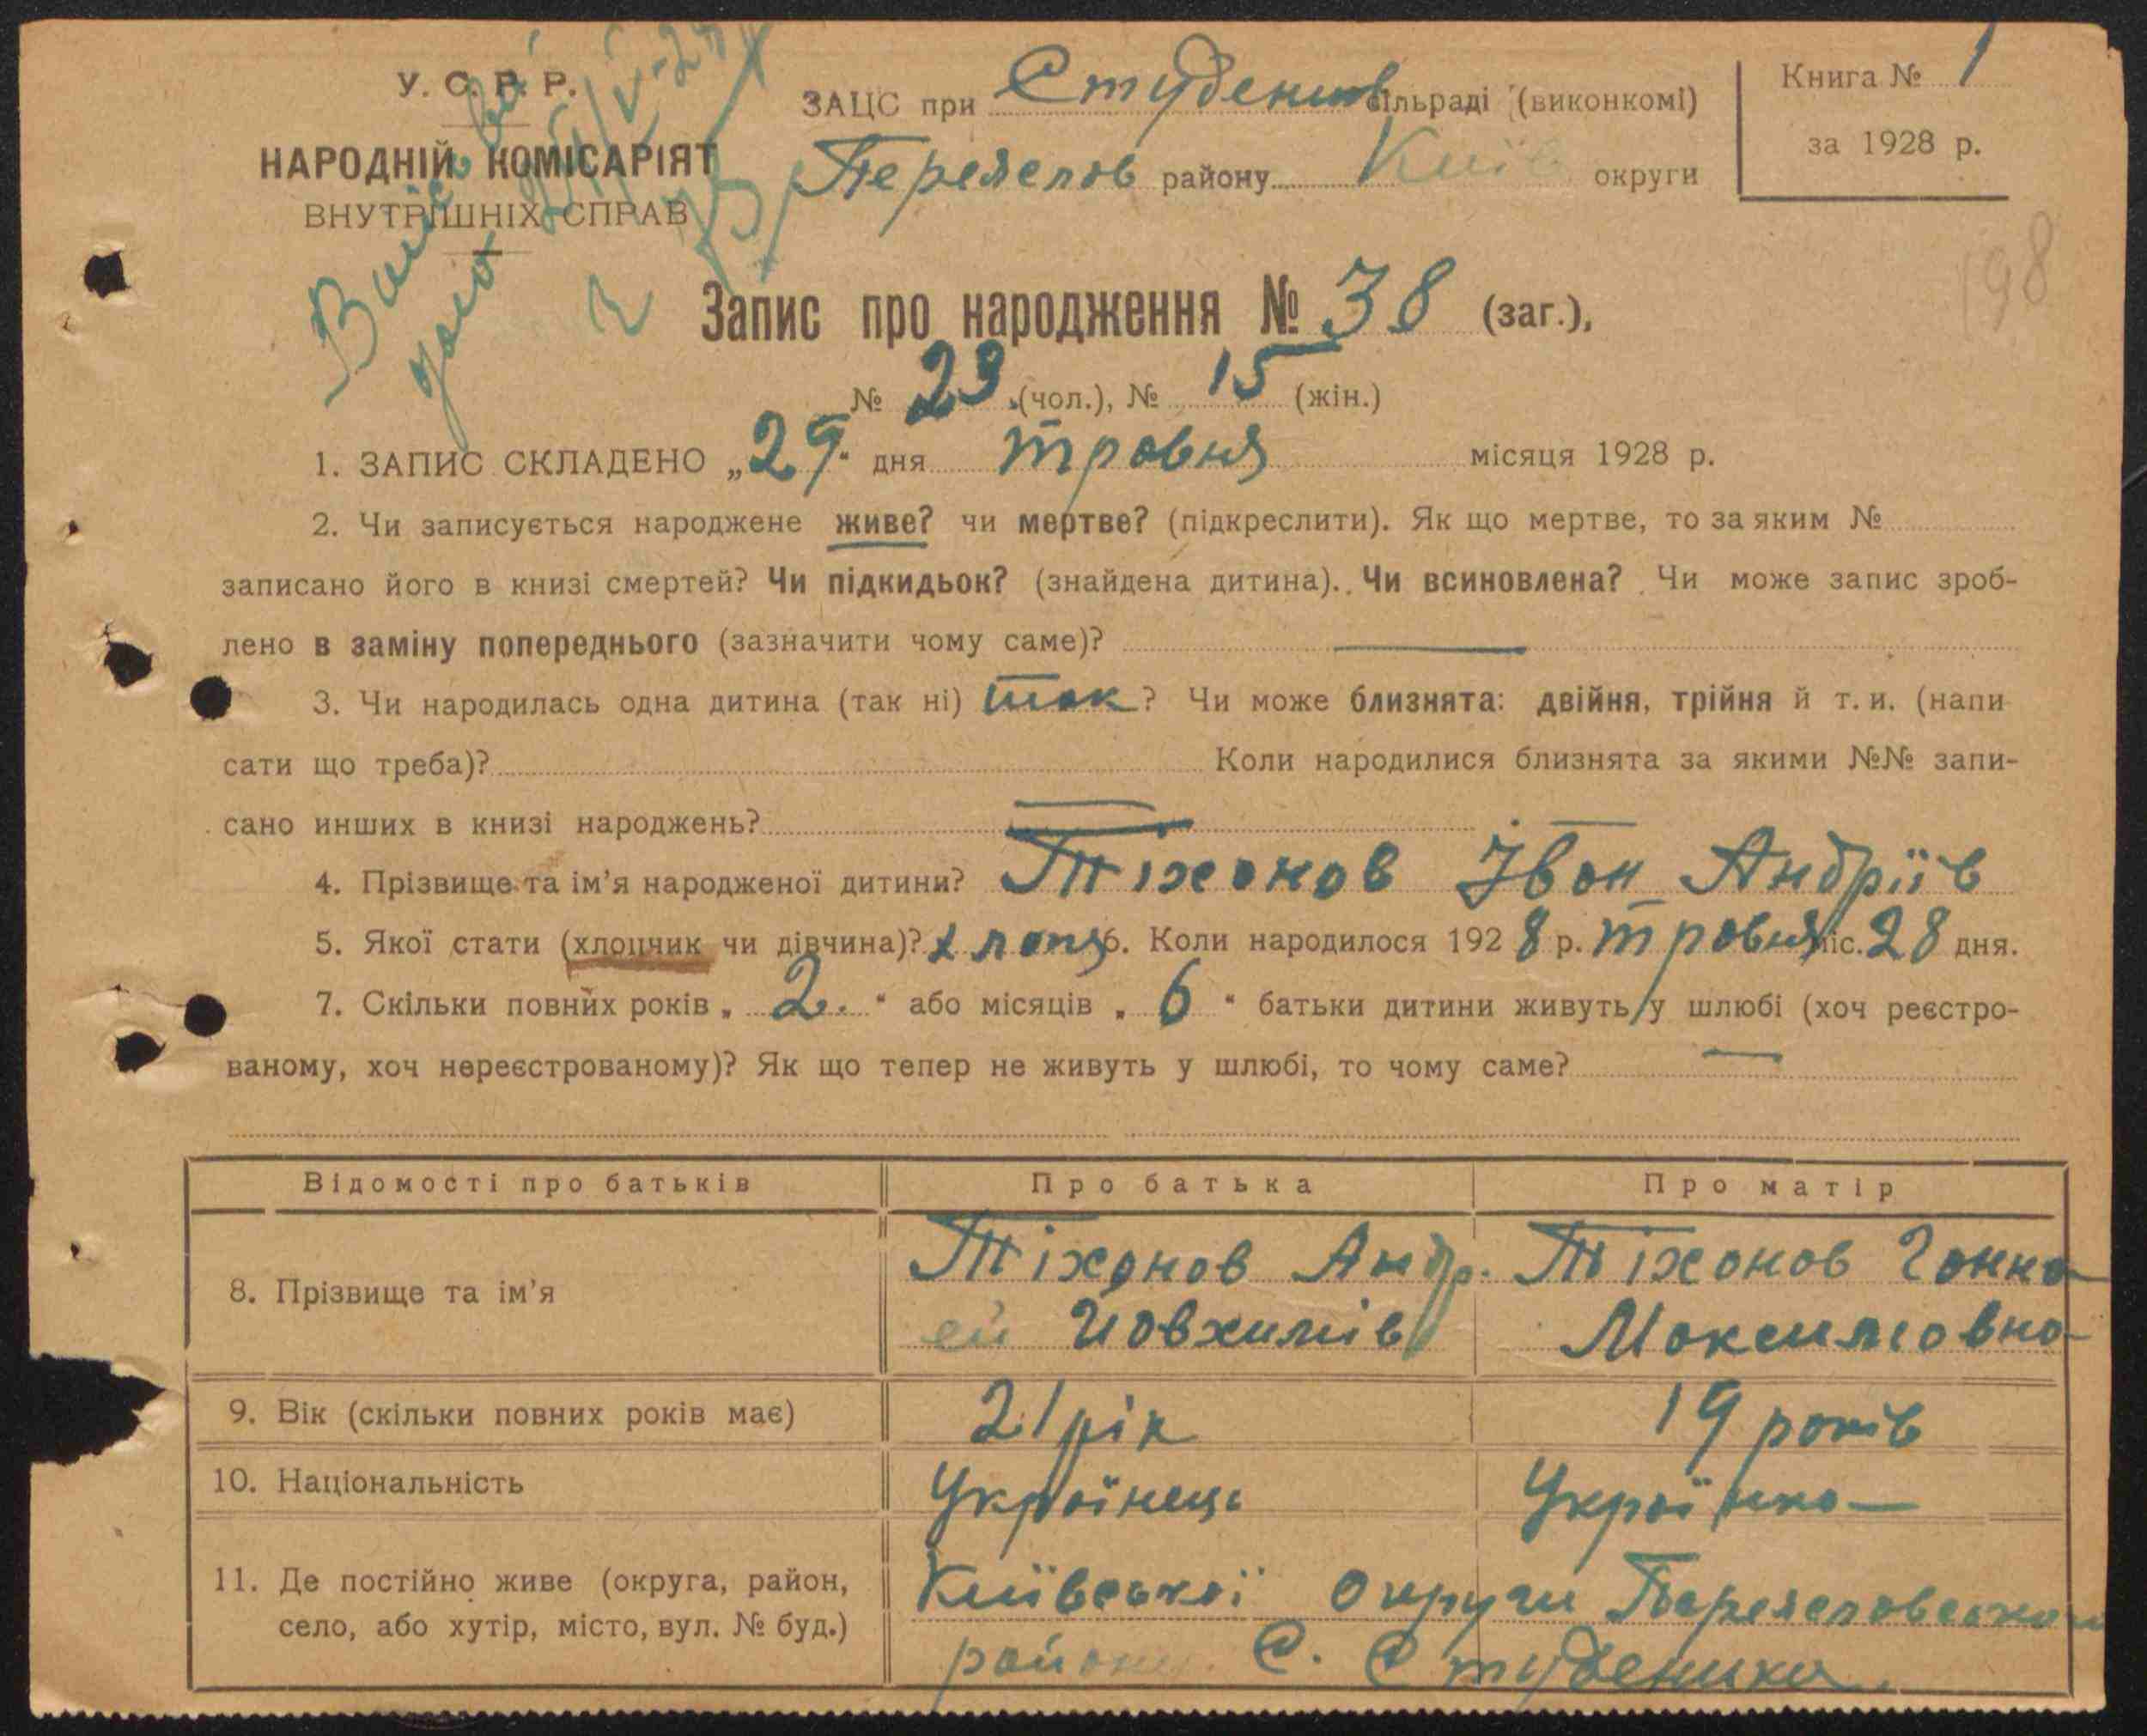 У. С. Р. Р.
НАРОДНІЙ КОМІСАРІЯТ
ВНУТРІШНІХ СПРАВ
ЗАЦС при Студеник сільраді (виконкомі)
Переяслов району Київ округи
Книга № 1
за 1928 р.
198
Запис про народження № 38 (заг.),
№ 23 (чол.), № 15 (жін.)
1. ЗАПИС СКЛАДЕНО „29“ дня травня місяця 1928 р.
2. Чи записується народжене живе? чи мертве? (підкреслити). Як що мертве, то за яким №
записано його в книзі смертей? Чи підкидьок? (знайдена дитина). Чи всиновлена? Чи може запис зроб-
лено в заміну попереднього (зазначити чому саме)? —
3. Чи народилась одна дитина (так ні) так? Чи може близнята: двійня, трійня й т. и. (напи
сати що треба)? Коли народилися близнята за якими №№ запи-
сано инших в книзі народжень?
4. Прізвище та ім’я народженої дитини? Тіхонов Іван Андріїв
5. Якої стати (хлопчик чи дівчина)? хлопч 6. Коли народилося 1928 р. травня міс. 28 дня.
7. Скільки повних років „ 2. “ або місяців „ 6 “ батьки дитини живуть у шлюбі (хоч реєстро-
ваному, хоч нереєстрованому)? Як що тепер не живуть у шлюбі, то чому саме? —
Відомості про батьків Про батька Про матір
8. Прізвище та ім’я
Тіхонов Андр.
ей Йовхимів
Тіхонов Ганна
Максимовна
9. Вік (скільки повних років має) 21 рік 19 років
10. Національність Українець Українка
11. Де постійно живе (округа, район,
село, або хутір, місто, вул. № буд.)
Київської округи Переясловського
району С. Студеники.